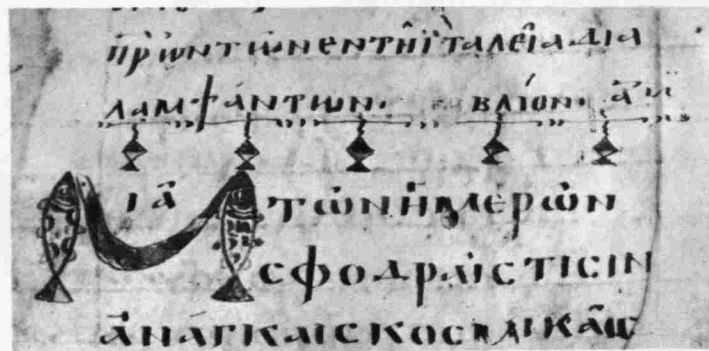 ΠΡΩΝΤΩΝΕΝΤΗΪΤΑΛΕΙΑΔΙΑ
ΛΑΜΨΑΝΤΩΝ· ΒΛΙΟΝ·
ΜΙΑ ΤΩΝΗΜΕΡΩΝ
ϹΦΟΔΡΑΙϹΤΙϹΙΝ
ΑΝΑΓΚΑΙϹΚΟϹΜΙΚΑΙϹ